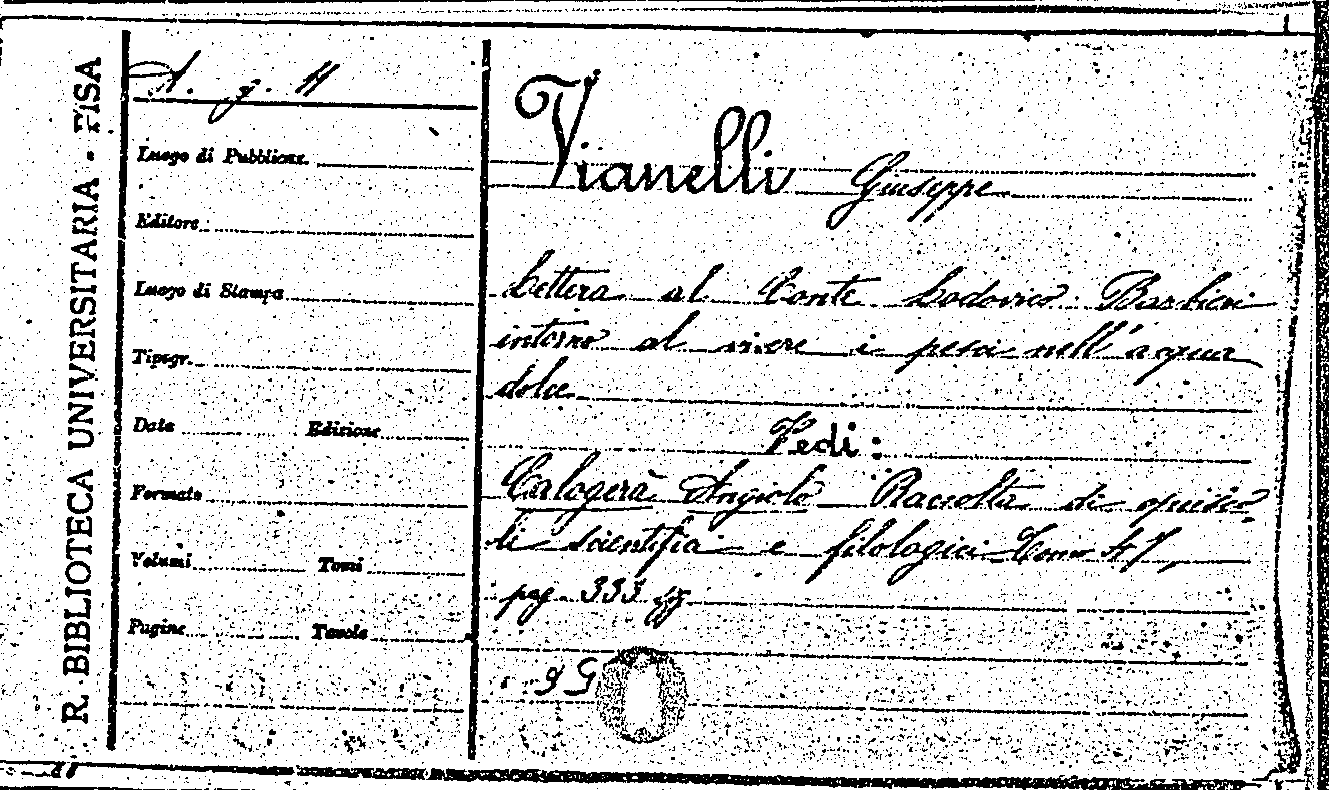 R. BIBLIOTECA UNIVERSITARIA - PISA
A. g. 4
Luogo di Pubblicaz.
Editore
Luogo di Stampa
Tipogr.
Data Edizione
Formato
Volumi Tomi
Pagine Tavole
Vianelli Giuseppe
Lettera al Conte Lodovico Barbieri
intorno al vivere i pesci nell'acqua
dolce
Vedi:
Calogerà Angiolo Raccolta di opusco-
li scientifici e filologici Tomo 47,
pag. 333 sgg